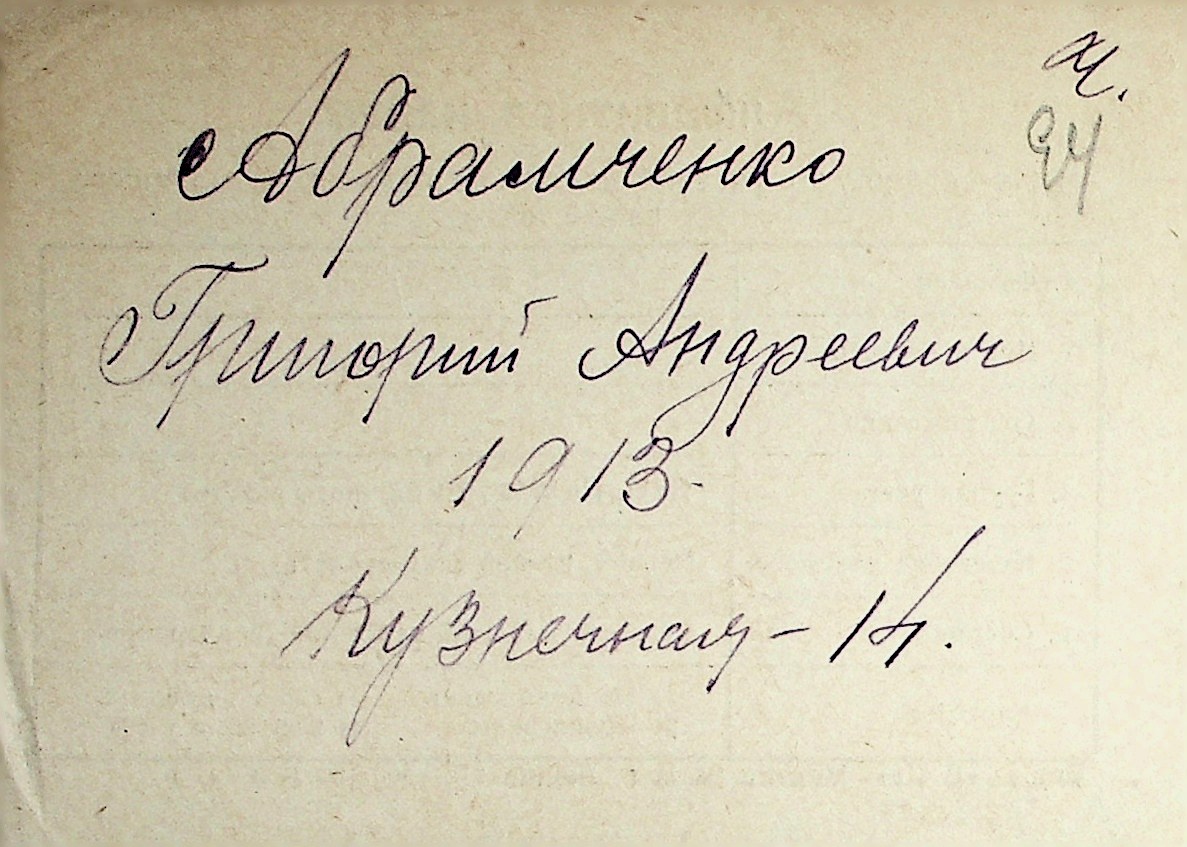 Абрамченко
Григорий Андреевич
1913.
Кузнечная – 14.